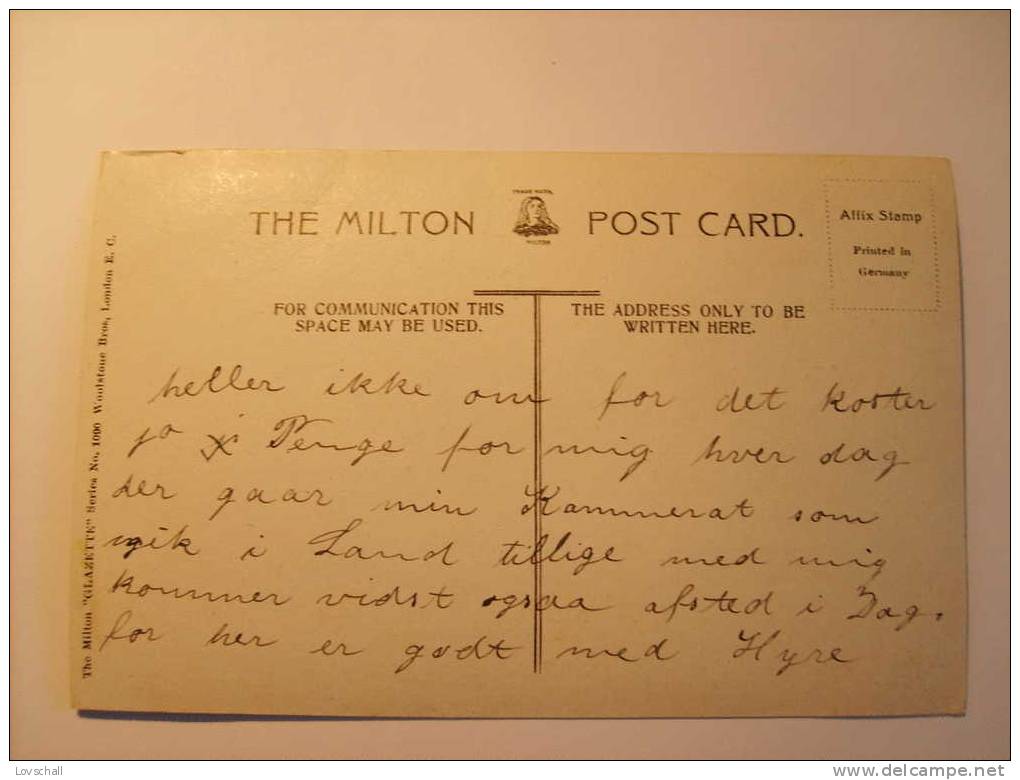 THE MILTON POST CARD.
TRADE MARK
MILTON
Affix Stamp
Printed in
Germany
FOR COMMUNICATION THIS
SPACE MAY BE USED.
THE ADDRESS ONLY TO BE
WRITTEN HERE.
The Milton "GLAZETTE" Series No. 1000 Woolstone Bros, London E. C.
heller ikke om for det koster
jo Penge for mig hver dag
der gaar min Kammerat som
gik i Land tillige med mig
kommer vidst ogsaa afsted i Dag.
for her er godt med Hyre
Lovschall
delcampe.net